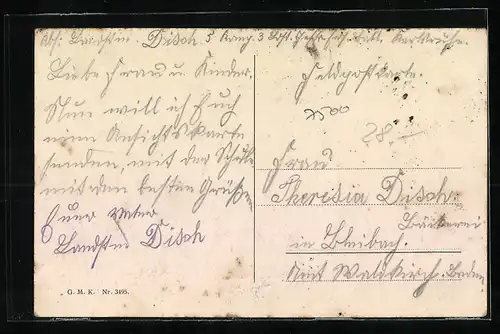 Abs: Landstm. Disch 5 Komp. 3 Karlsruhe.
Liebe Frau u. Kinder.
Nun will ich Euch
eine Ansichtskarte
senden, mit der
mit den besten Grüßen
Euer Vater
Landstm Disch
G. M. K. Nr. 3495.
Feldpostkarte.
7500
28.-
Frau
Theresia Disch
Bäckerei
in Bleibach.
Amt Waldkirch. Baden